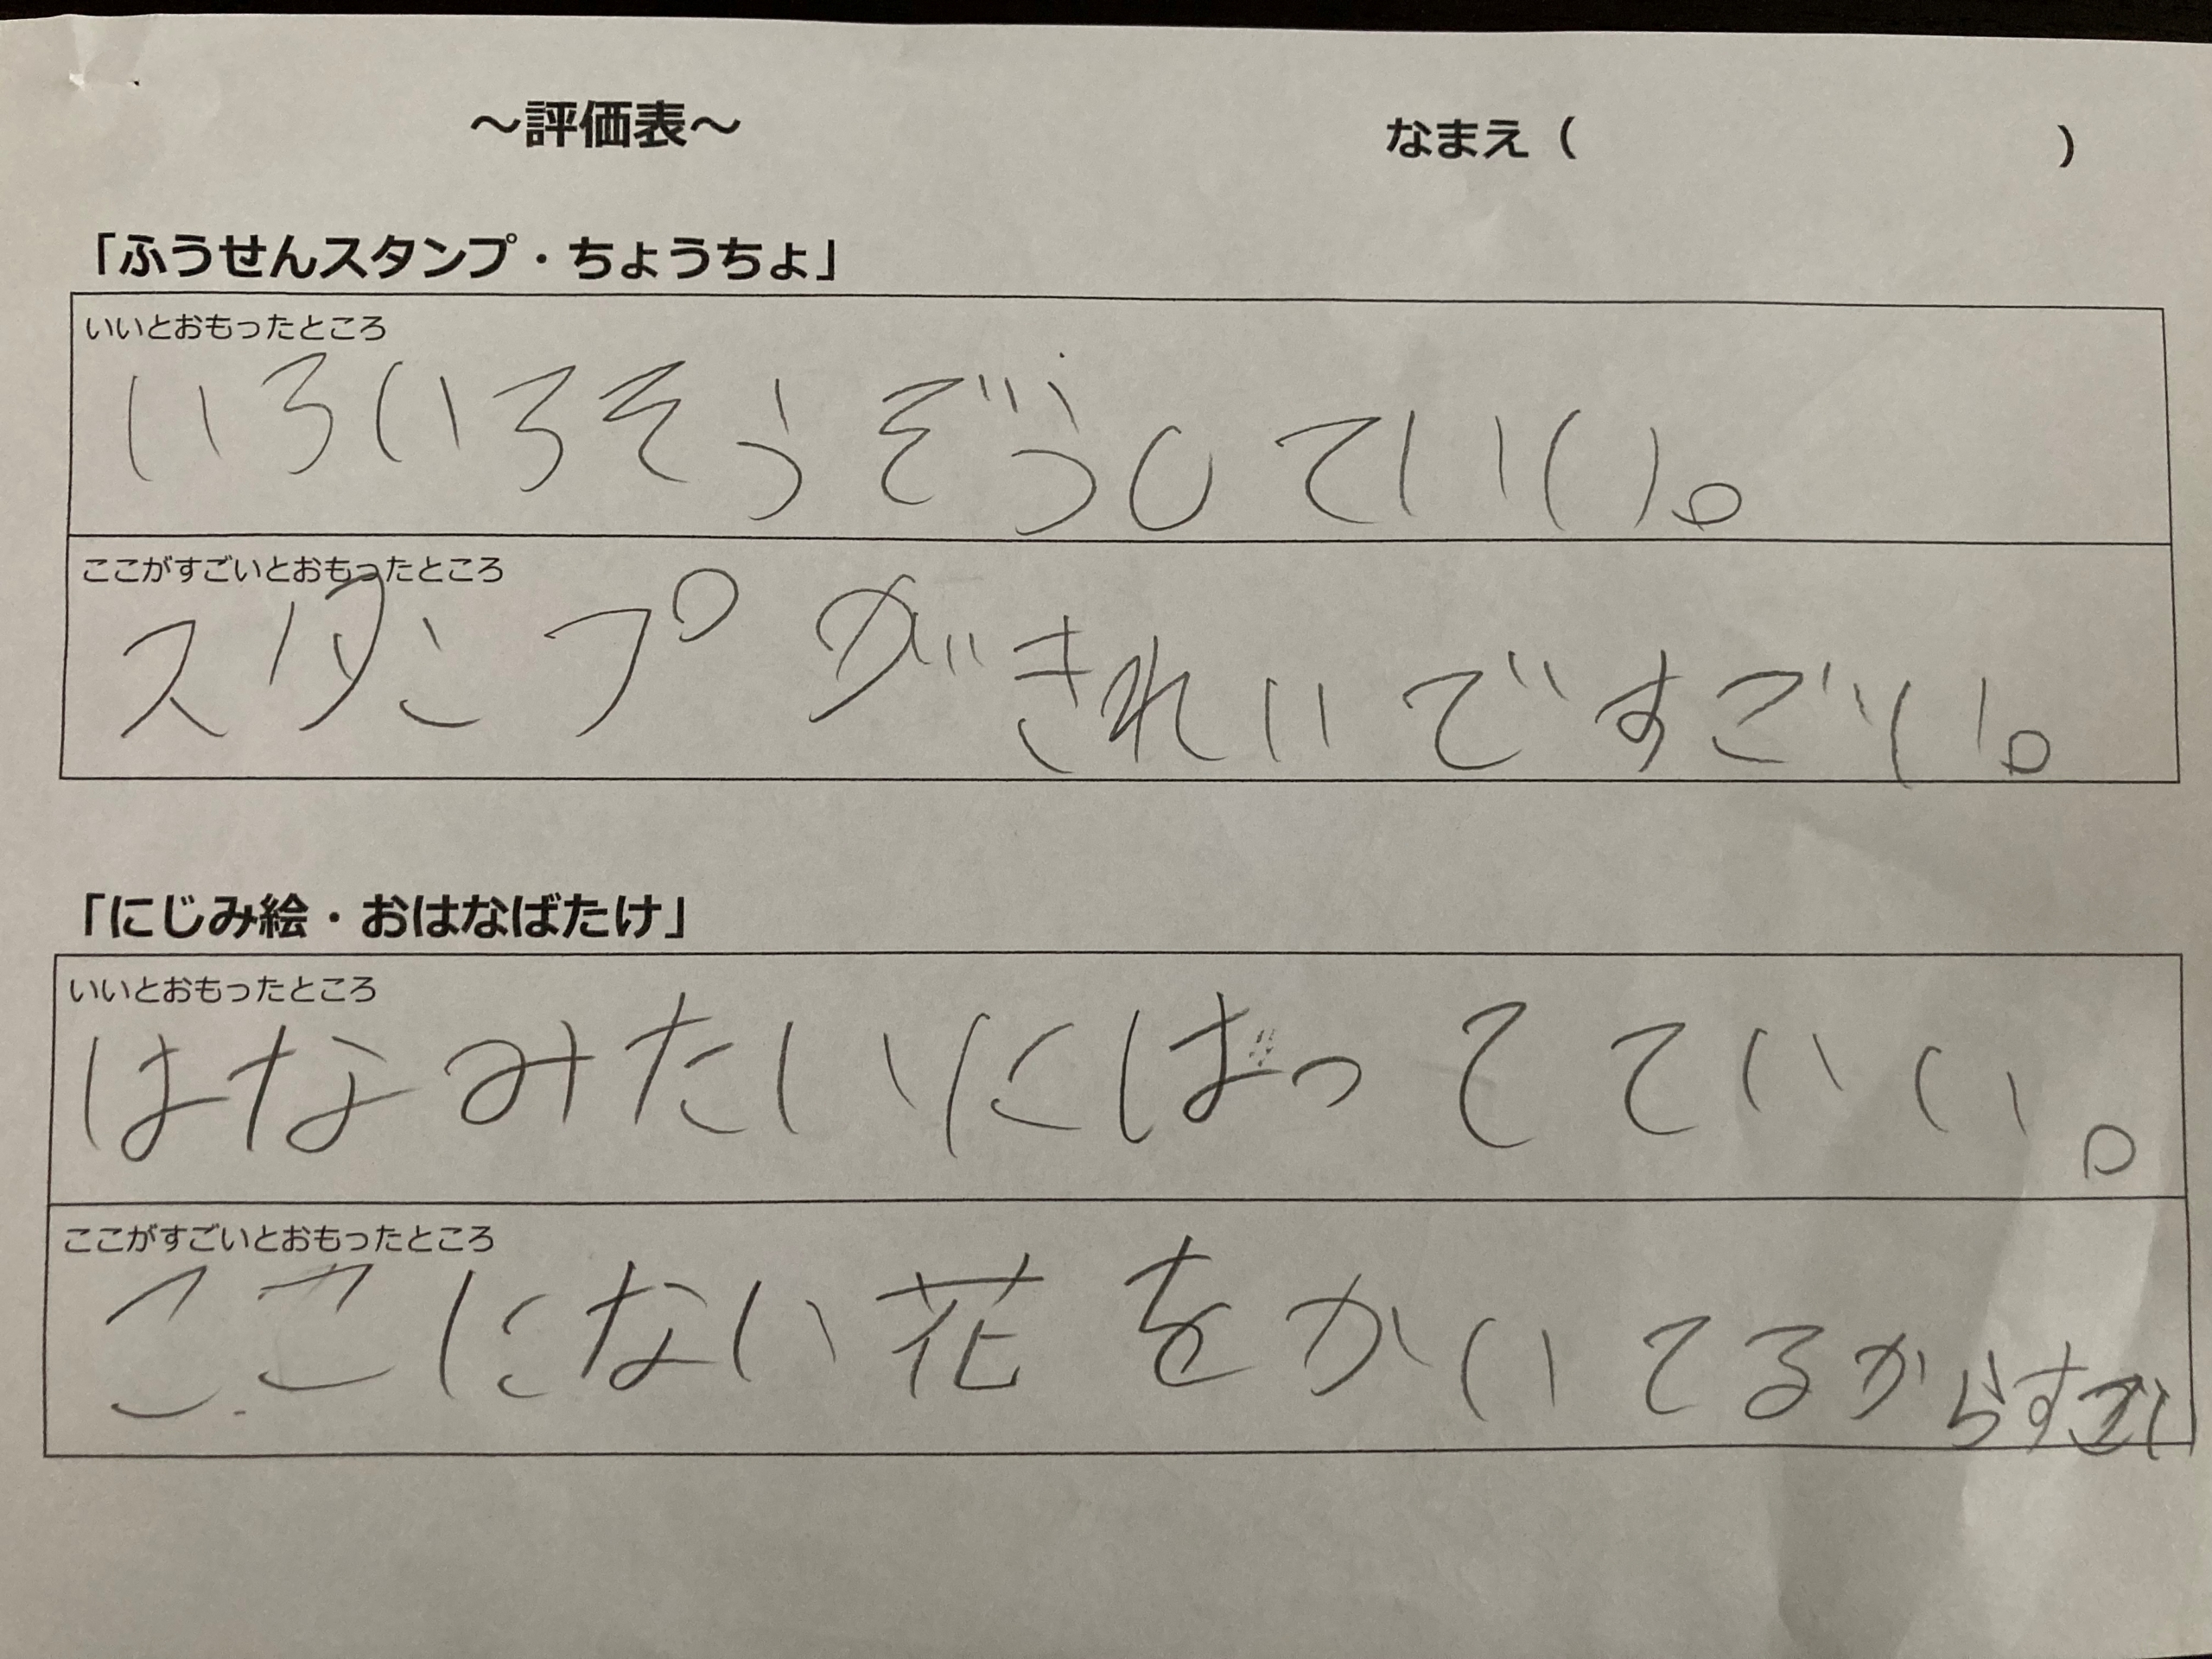 ～評価表～ なまえ（ ）
「ふうせんスタンプ・ちょうちょ」
いいとおもったところ
いろいろそうぞうしていい。
ここがすごいとおもったところ
スタンプがきれいですごい。
「にじみ絵・おはなばたけ」
いいとおもったところ
はなみたいにばってていい。
ここがすごいとおもったところ
ここにない花をかいてるからすごい